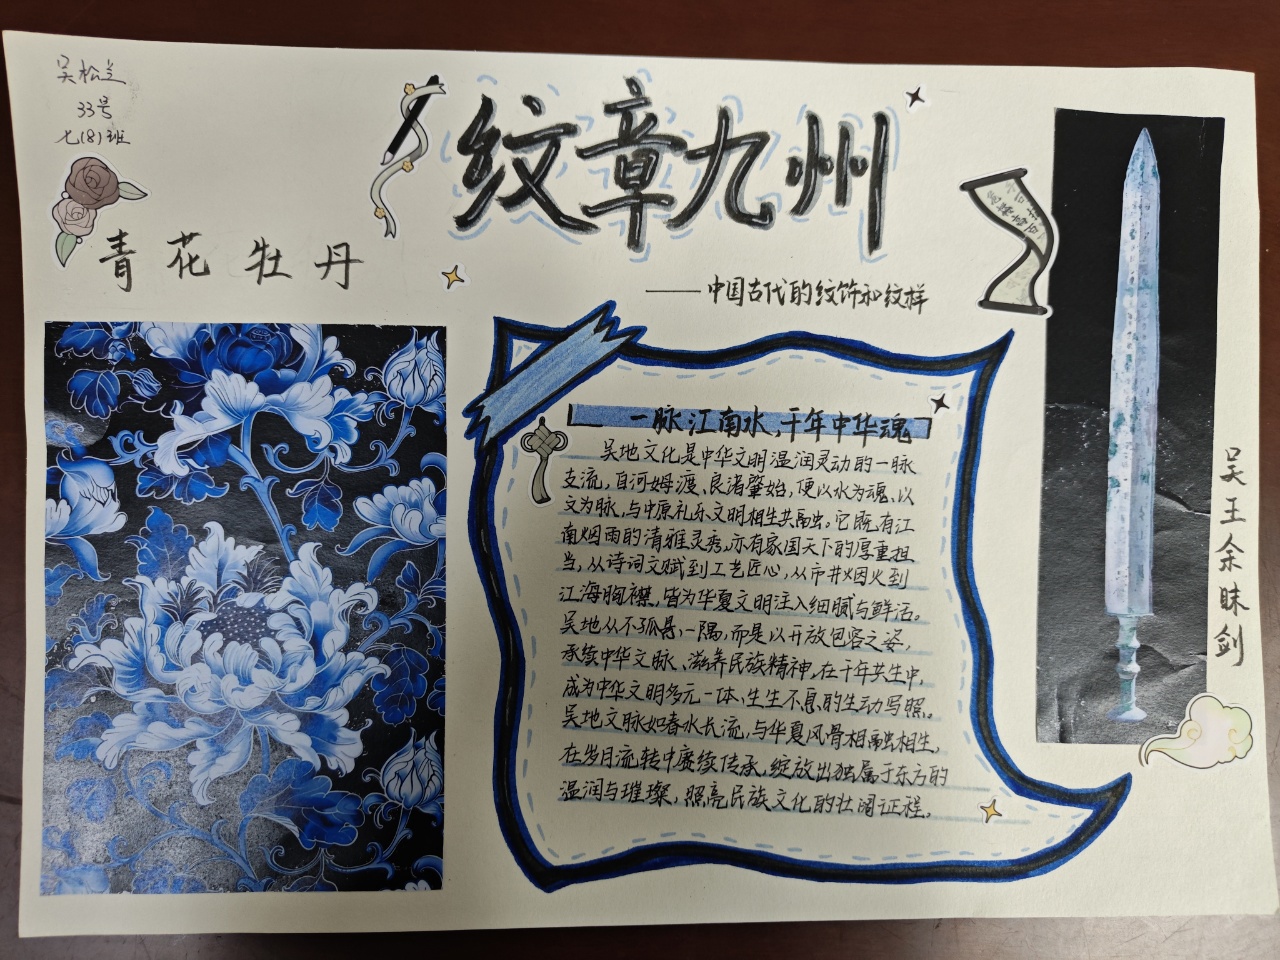 吴松兰
33号
七(8)班
纹章九州
——中国古代的纹饰和纹样
青花牡丹
一脉江南水,千年中华魂
吴地文化是中华文明温润灵动的一脉
支流,自河姆渡、良渚肇始,便以水为魂、以
文为脉,与中原礼乐文明相生共融。它既有江
南烟雨的清雅灵秀,亦有家国天下的厚重担
当,从诗词文赋到工艺匠心,从市井烟火到
江海胸襟,皆为华夏文明注入细腻与鲜活。
吴地从不孤悬一隅,而是以开放包容之姿,
承续中华文脉、滋养民族精神,在千年共生中,
成为中华文明多元一体、生生不息的生动写照。
吴地文脉如春水长流,与华夏风骨相融相生,
在岁月流转中赓续传承,绽放出独属于东方的
温润与璀璨,照亮民族文化的壮阔征程。
吴王余眛剑